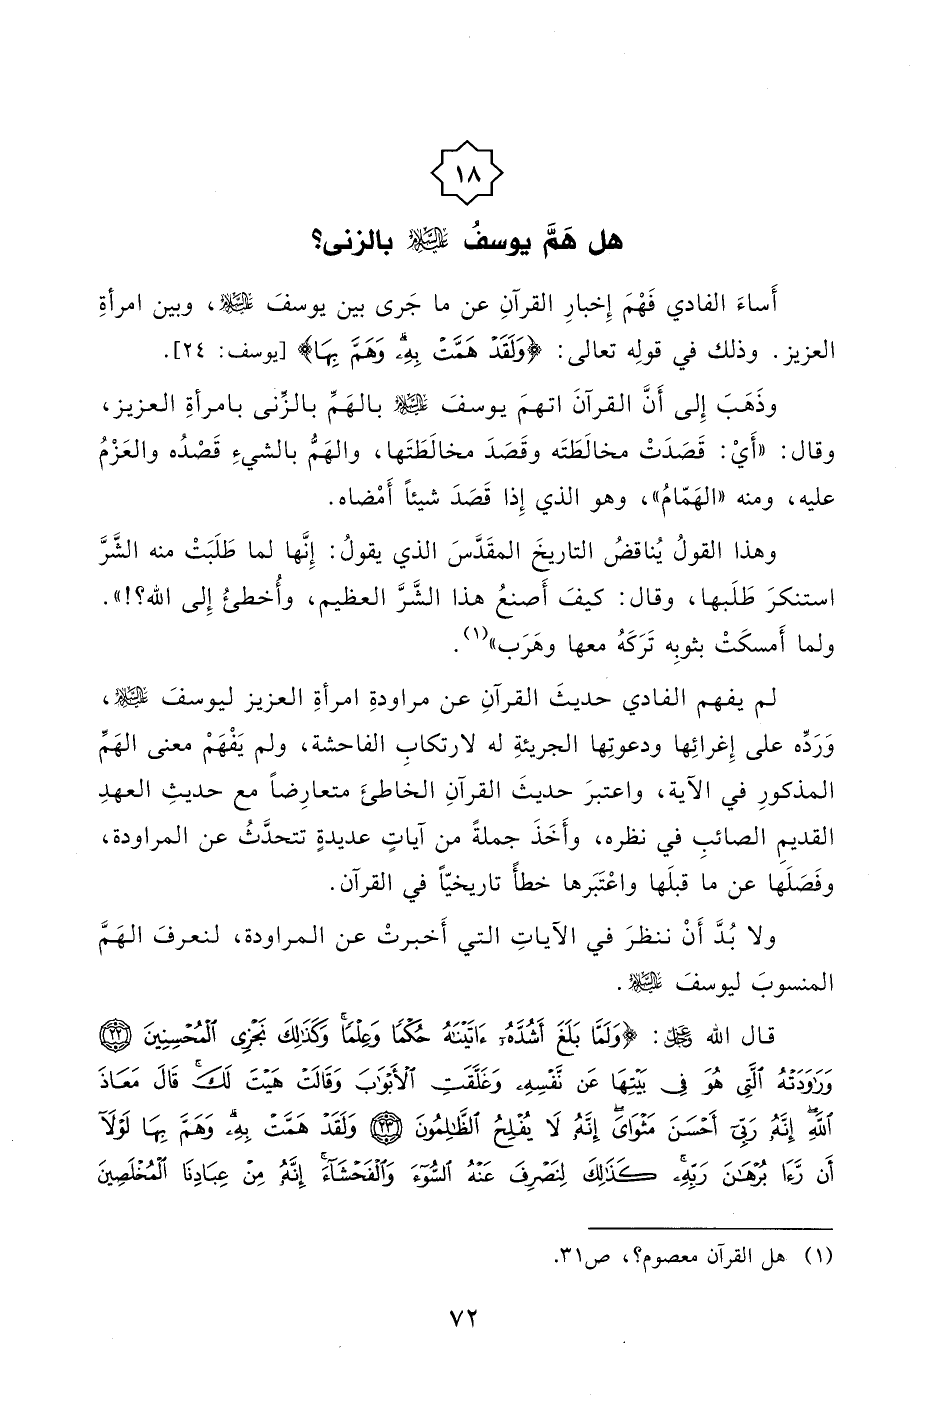 ١٨
هل هَمَّ يوسفُ عليه السلام بالزنى؟
أَساءَ الفادي فَهْمَ إِخبارِ القرآنِ عن ما جَرى بين يوسفَ عليه السلام، وبين امرأةِ
العزيز. وذلك في قولِه تعالى: ﴿وَلَقَدْ هَمَّتْ بِهِۦ ۖ وَهَمَّ بِهَا﴾ [يوسف: ٢٤].
وذَهَبَ إِلى أَنَّ القرآنَ اتهمَ يوسفَ عليه السلام بالهَمِّ بالزِّنى بامرأةِ العزيز،
وقال: «أَيْ: قَصَدَتْ مخالَطَتَه وقَصَدَ مخالَطَتَها، والهَمُّ بالشيءِ قَصْدُه والعَزْمُ
عليه، ومنه «الهَمّامُ»، وهو الذي إِذا قَصَدَ شيئاً أَمْضاه.
وهذا القولُ يُناقضُ التاريخَ المقدَّسَ الذي يقولُ: إِنَّها لما طَلَبَتْ منه الشَّرَّ
استنكرَ طَلَبها، وقال: كيفَ أَصنعُ هذا الشَّرَّ العظيم، وأُخطئُ إِلى الله؟!».
ولما أَمسكَتْ بثوبِه تَرَكَهُ معها وهَرَب»(١).
لم يفهم الفادي حديثَ القرآنِ عن مراودةِ امرأةِ العزيز ليوسفَ عليه السلام،
وَرَدِّه على إِغرائِها ودعوتِها الجريئةِ له لارتكابِ الفاحشة، ولم يَفْهَمْ معنى الهَمِّ
المذكورِ في الآية، واعتبرَ حديثَ القرآنِ الخاطئَ متعارِضاً مع حديثِ العهدِ
القديمِ الصائبِ في نظره، وأَخَذَ جملةً من آياتٍ عديدةٍ تتحدَّثُ عن المراودة،
وفَصَلَها عن ما قبلَها واعْتَبَرها خطأً تاريخيّاً في القرآن.
ولا بُدَّ أَنْ ننظرَ في الآياتِ التي أَخبرتْ عن المراودة، لنعرفَ الهَمَّ
المنسوبَ ليوسفَ عليه السلام.
قال الله عز وجل: ﴿وَلَمَّا بَلَغَ أَشُدَّهُۥٓ ءَاتَيْنَٰهُ حُكْمًا وَعِلْمًا ۚ وَكَذَٰلِكَ نَجْزِى ٱلْمُحْسِنِينَ ٢٢
وَرَٰوَدَتْهُ ٱلَّتِى هُوَ فِى بَيْتِهَا عَن نَّفْسِهِۦ وَغَلَّقَتِ ٱلْأَبْوَٰبَ وَقَالَتْ هَيْتَ لَكَ ۚ قَالَ مَعَاذَ
ٱللَّهِ ۖ إِنَّهُۥ رَبِّىٓ أَحْسَنَ مَثْوَاىَ ۖ إِنَّهُۥ لَا يُفْلِحُ ٱلظَّٰلِمُونَ ٢٣ وَلَقَدْ هَمَّتْ بِهِۦ ۖ وَهَمَّ بِهَا لَوْلَآ
أَن رَّءَا بُرْهَٰنَ رَبِّهِۦ ۚ كَذَٰلِكَ لِنَصْرِفَ عَنْهُ ٱلسُّوٓءَ وَٱلْفَحْشَآءَ ۚ إِنَّهُۥ مِنْ عِبَادِنَا ٱلْمُخْلَصِينَ
(١) هل القرآن معصوم؟، ص٣١.
٧٢